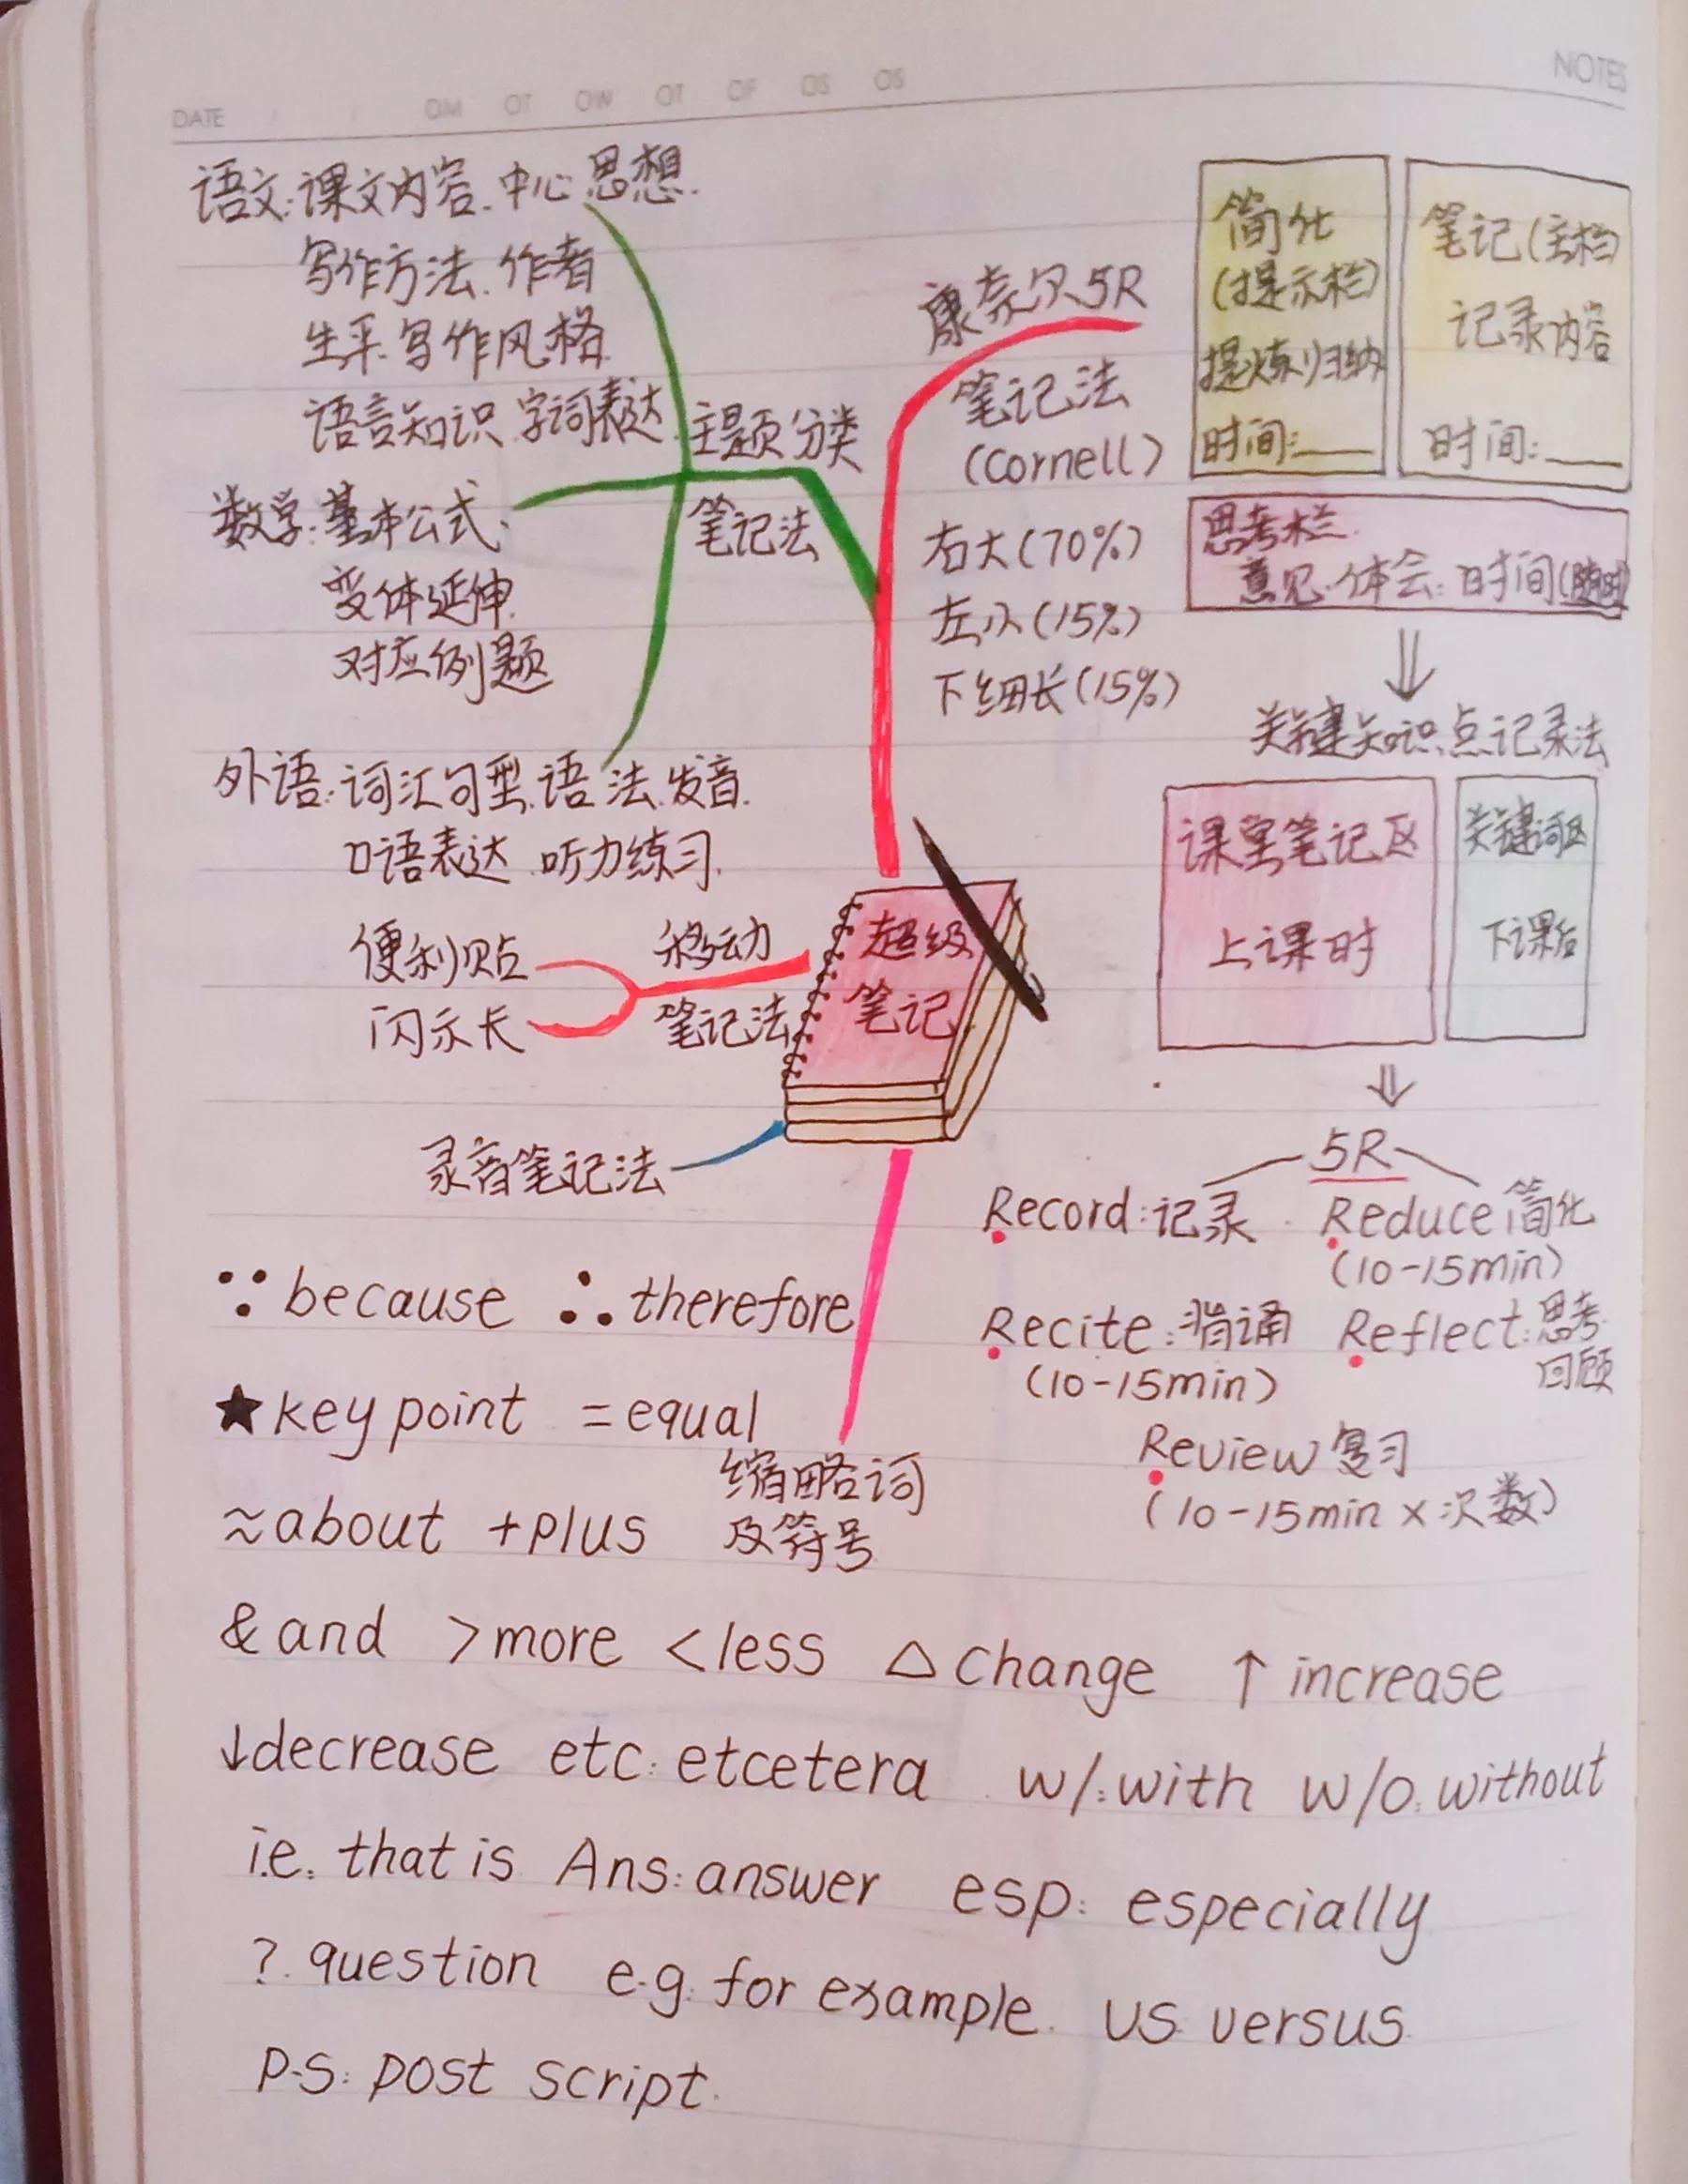 DATE / / OM OT OW OT OF OS OS
NOTES
语文:课文内容.中心思想.
写作方法.作者
生平.写作风格.
语言知识.字词表达
数学:基本公式.
变体延伸.
对应例题
外语:词汇句型.语法.发音.
口语表达.听力练习.
主题分类
笔记法
康奈尔5R
笔记法
(Cornell)
右大(70%)
左小(15%)
下细长(15%)
简化
(提示栏)
提炼归纳
时间:___
笔记(主栏)
记录内容
时间:___
思考栏.
意见.体会:时间(随时)
⇓
关键知识点记录法
课堂笔记区
上课时
关键词区
下课后
⇓
5R
Record:记录
Reduce简化
(10-15min)
Recite:背诵
(10-15min)
Reflect:思考
回顾
Review复习
(10-15min×次数)
超级
笔记
移动
笔记法
便利贴
闪示卡
录音笔记法
缩略词
及符号
∵because ∴therefore
★key point =equal
≈about +plus
&and >more <less △change ↑increase
↓decrease etc:etcetera w/:with w/o:without
i.e. that is Ans:answer esp: especially
?.question e.g. for example. vs versus
P.S: post script.